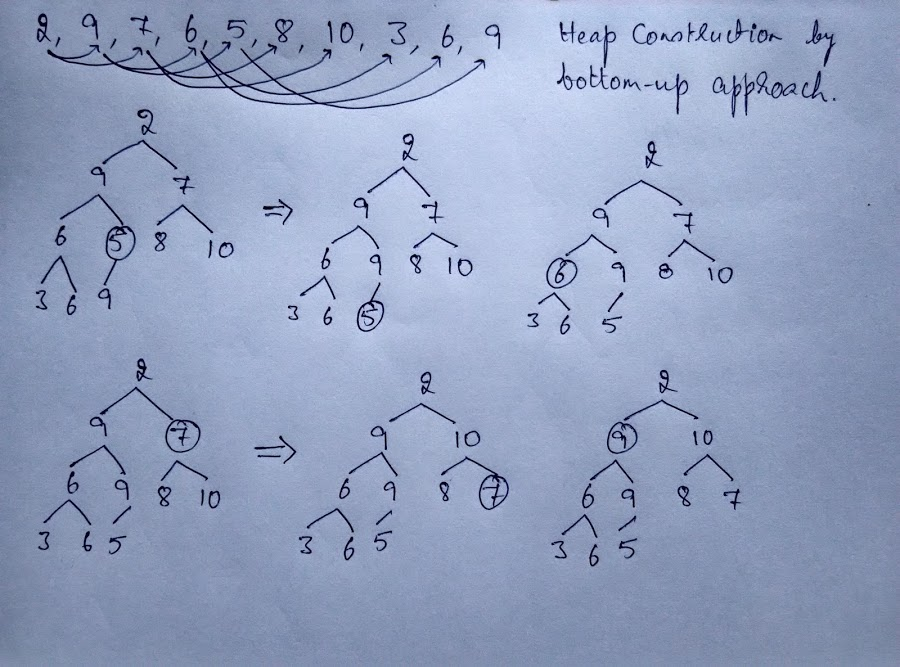 2, 9, 7, 6, 5, 8, 10, 3, 6, 9
Heap Construction by
bottom-up approach.
2
9 7
6 5 8 10
3 6 9
⇒
2
9 7
6 9 8 10
3 6 5
2
9 7
6 9 8 10
3 6 5
2
9 7
6 9 8 10
3 6 5
⇒
2
9 10
6 9 8 7
3 6 5
2
9 10
6 9 8 7
3 6 5